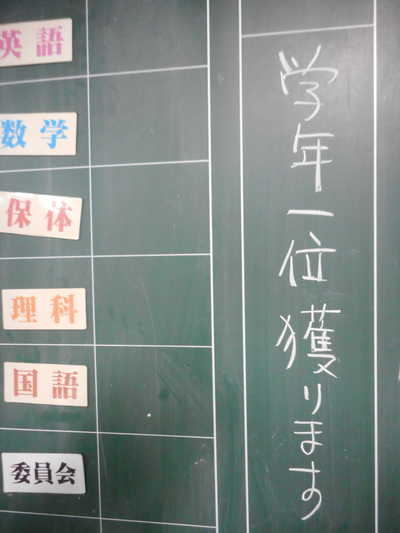 英語
数学
保体
理科
国語
委員会
学年一位獲ります